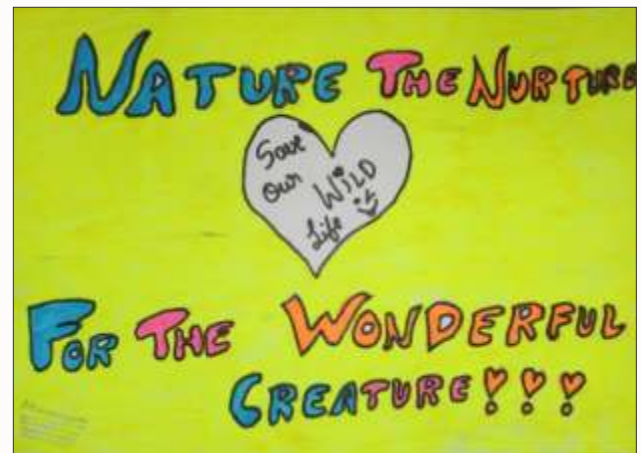 NATURE THE NURTURE
Save
our WILD
Life
FOR THE WONDERFUL
CREATURE!!!